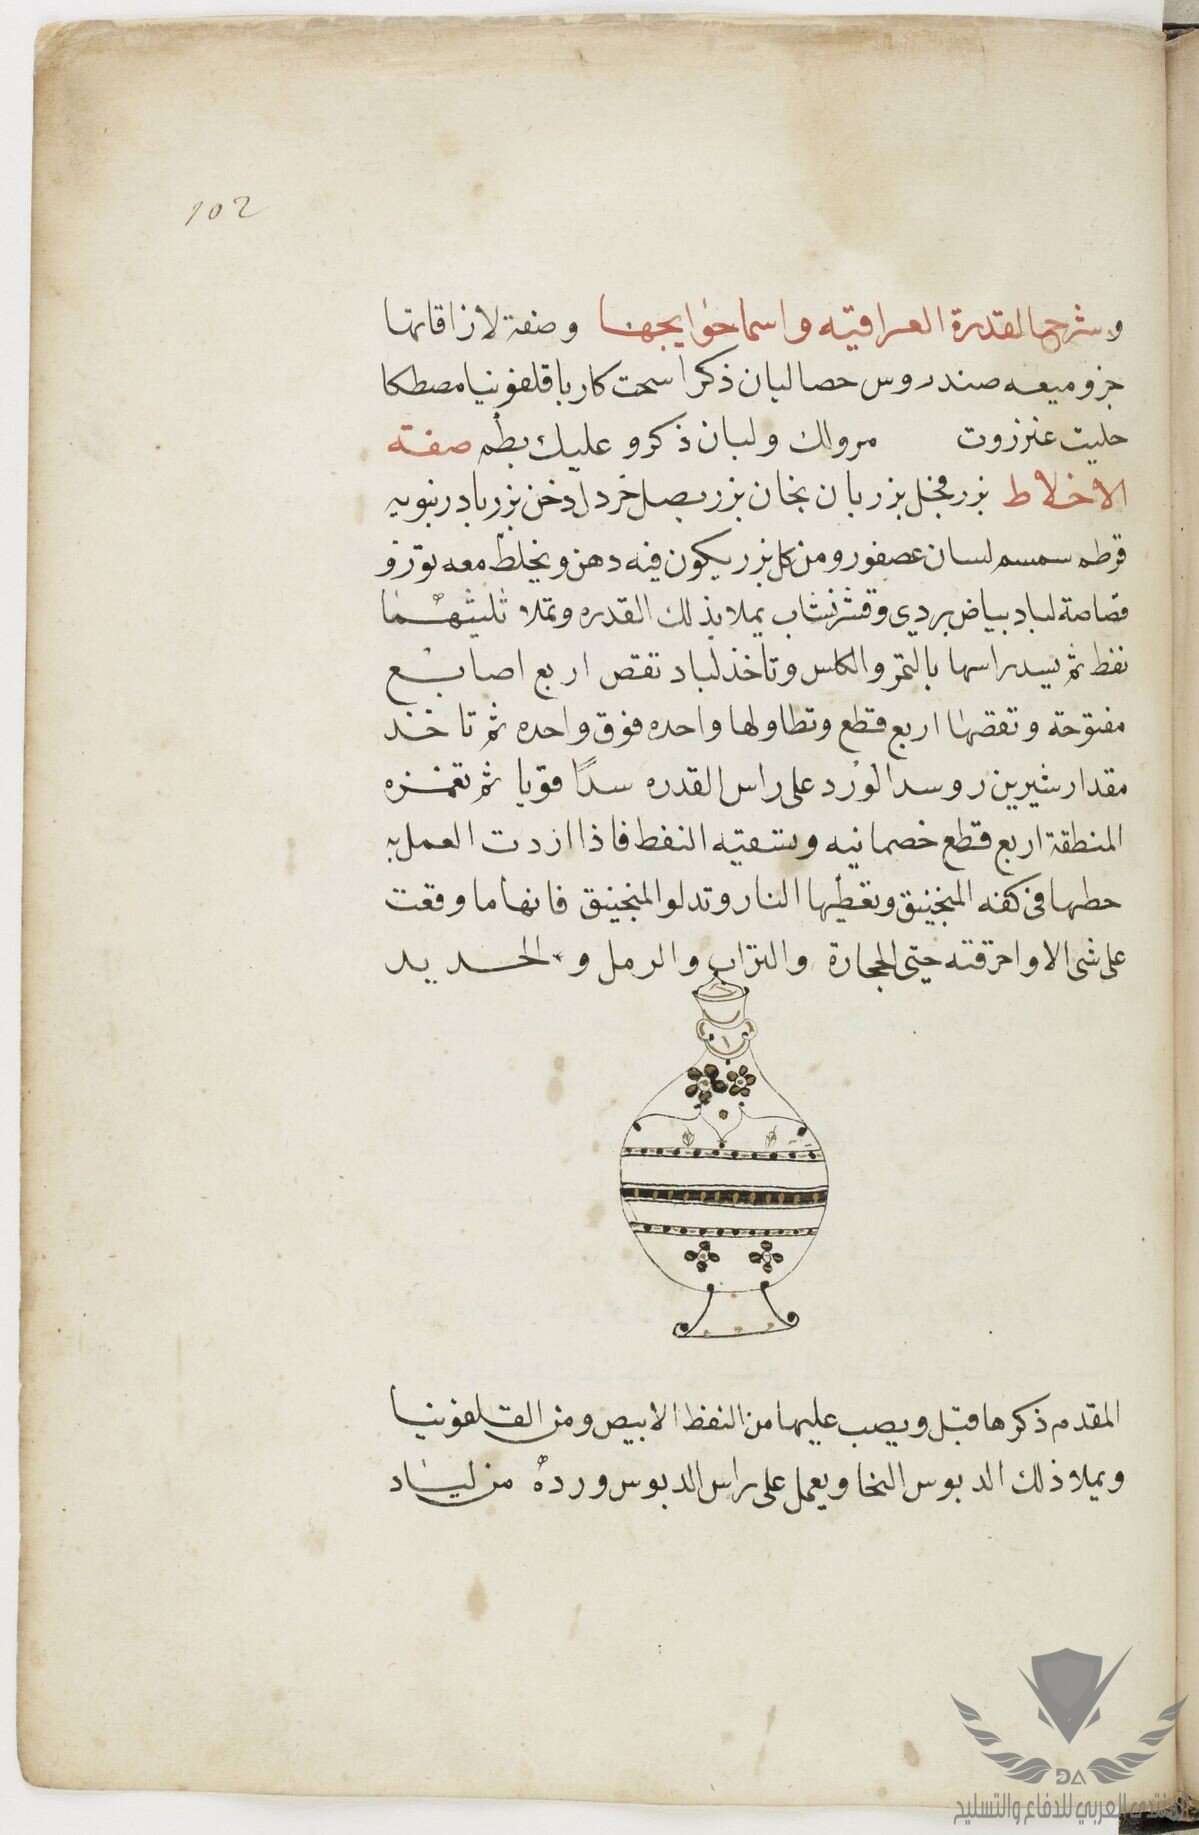 102
وشرحها القدرة العراقيه واسما حوايجها وصفة لازاقاتها
جزو ميعه صندروس حصا لبان ذكر اسحت كاربا قلفونيا مصطكا
حليت عنزروت مرولك ولبان ذكر و عليك بطم صفته
الاخلاط بزر فجل بزر بان بخان بزر بصل خردل دخن بزر بادرنبويه
قرطم سمسم لسان عصفور ومن كل بزر يكون فيه دهن ويخلط معه توز و
قصاصة لباد بياض بردي وقشر نشاب يملا بذلك القدره وتملا ثلثيهما
نفط ثم يسد راسها بالتمر والكلس وتاخذ لباد تقص اربع اصابع
مفتوحة وتقصها اربع قطع وتطاولها واحده فوق واحده ثم تاخذ
مقدار شيرين روسد الورد على راس القدره سدا قويا ثم تغمزه
المنطقة اربع قطع خصمانيه وسقيه النفط فاذا اردت العمل به
حطها فى كفه المنجنيق وتعطيها النار وتدلوا المنجنيق فانها ما وقعت
على شى الا واحرقته حتى الحجارة والتراب والرمل والحديد
المقدم ذكرها قبل ويصب عليها من النفط الابيض ومن القلفونيا
ويملا ذلك الدبوس النخا ويعمل على راس الدبوس وردة من لباد
DA
المنتدى العربي للدفاع والتسليح